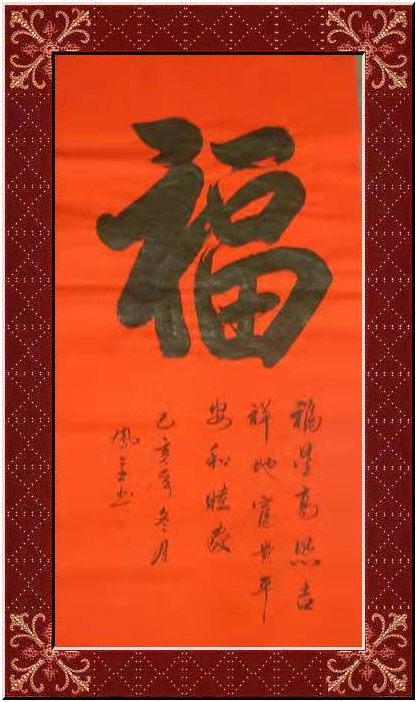 福
福星高照吉
祥地富贵平
安和睦家
己亥年冬月